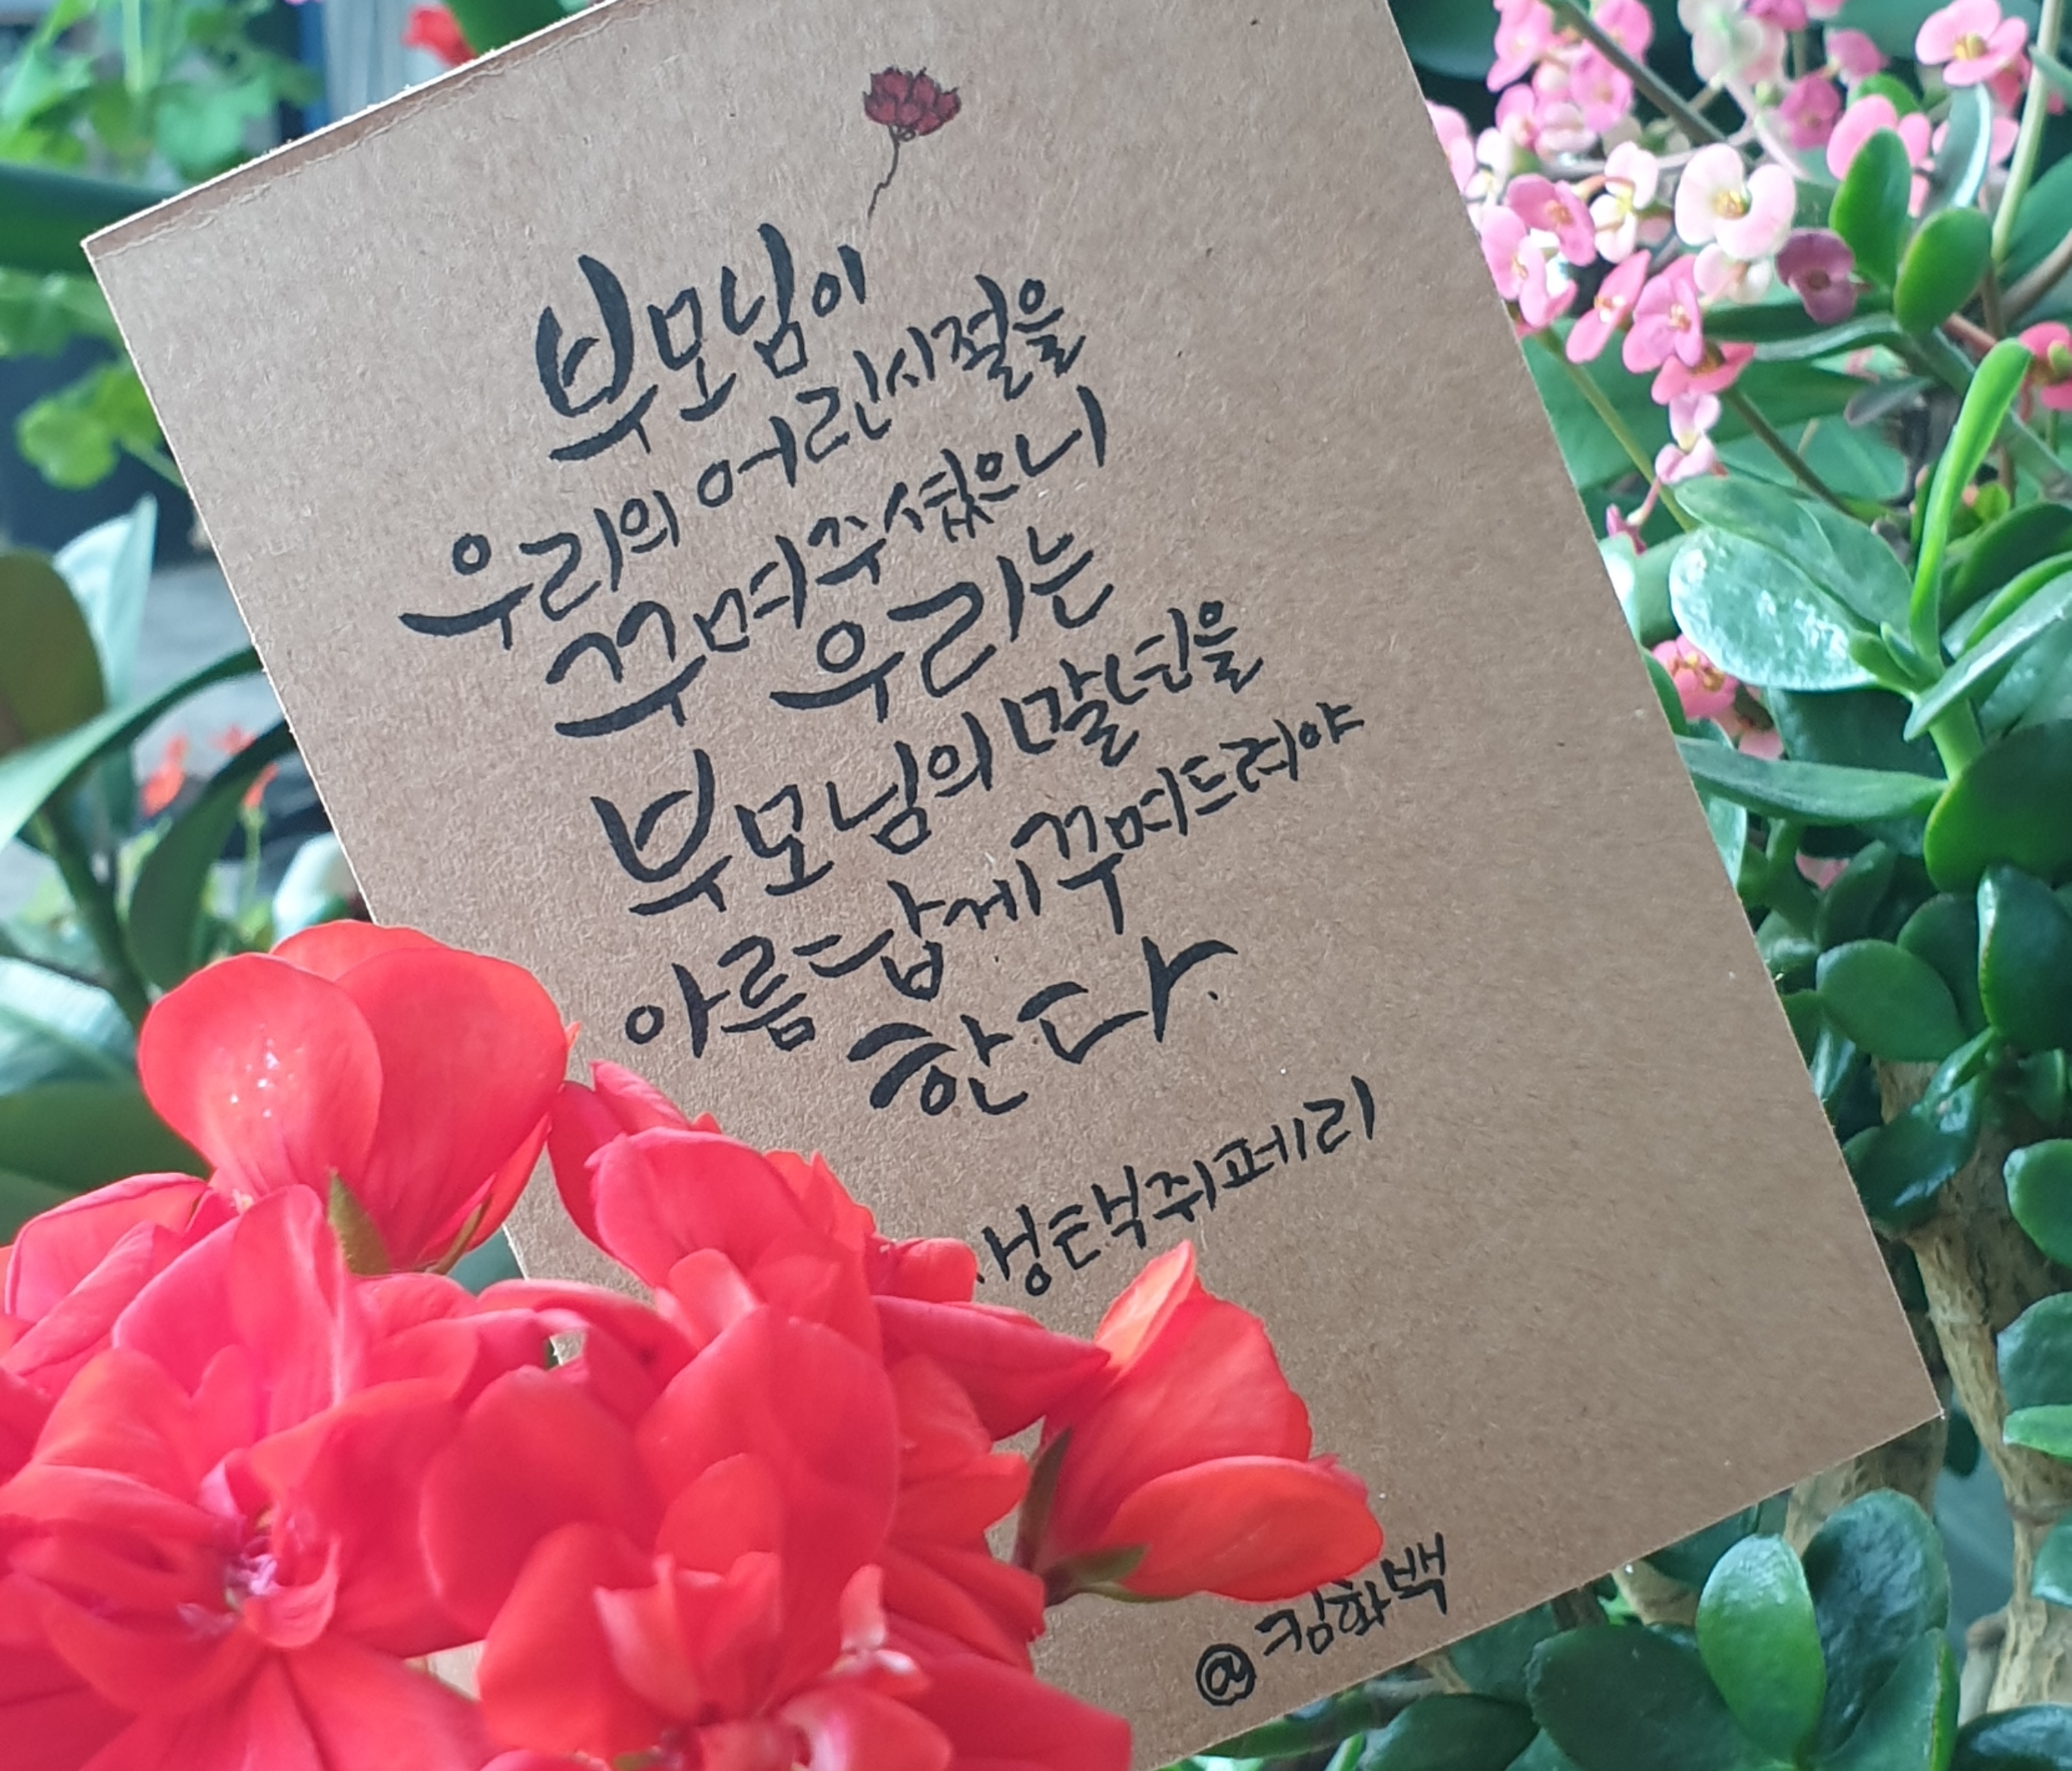 부모님이
우리의 어린시절을
꾸며주셨으니
우리는
부모님의 말년을
아름답게 꾸며드려야
한다.
생텍쥐페리
@킴화백